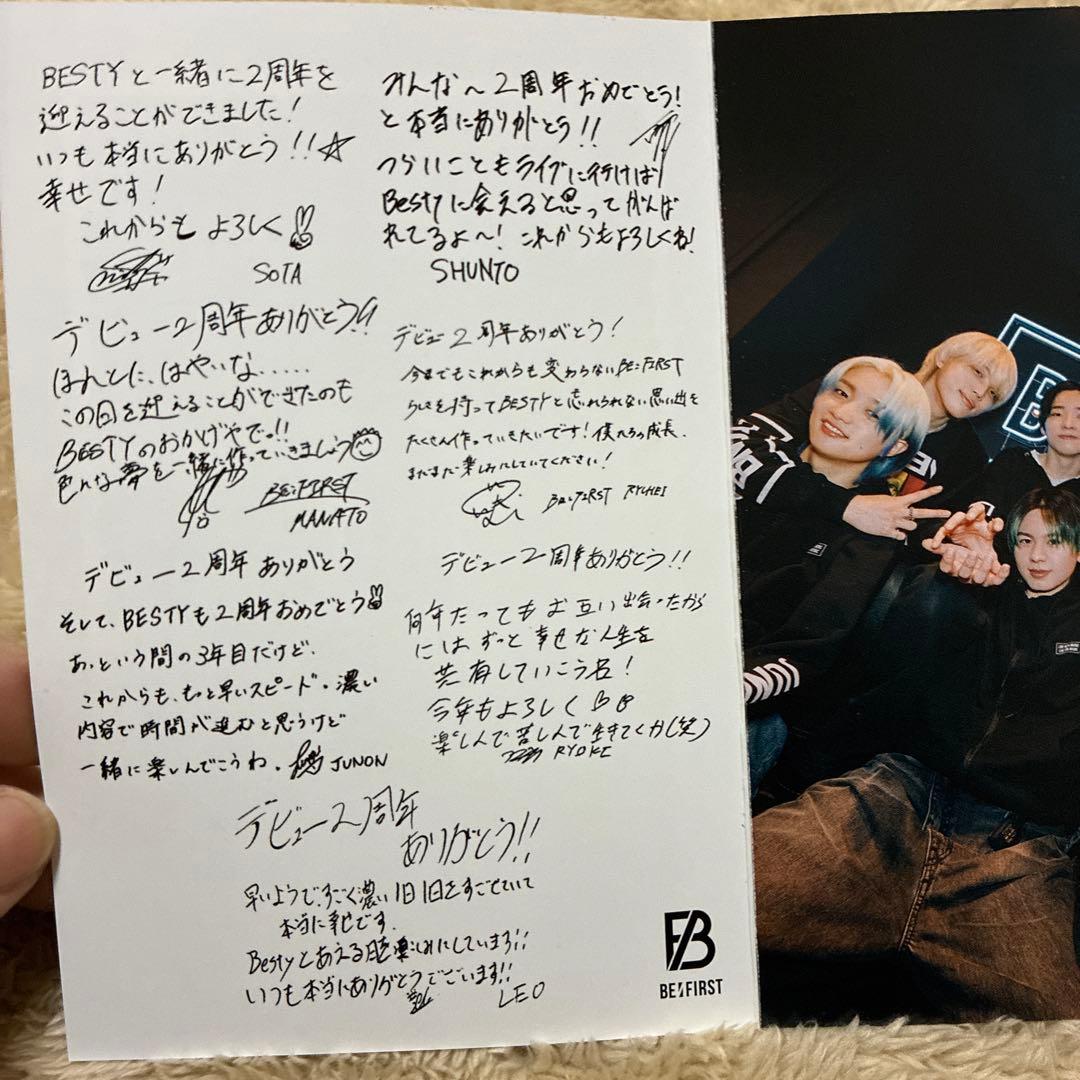 BESTYと一緒に2周年を
迎えることができました!
いつも本当にありがとう!!☆
幸せです!
これからも よろしく
SOTA
みんな〜2周年おめでとう!
と本当にありがとう!!
つらいこともライブに行けば
Bestyに会えると思ってがんば
れてるよ〜! これからもよろしくね!
SHUNTO
デビュー2周年ありがとう!!
ほんとに、はやいな.....
この日を迎えることができたのも
BESTYのおかげやでっ!!
色んな夢を一緒に作っていきましょう
BE:FIRST
MANATO
デビュー2周年ありがとう!
今までもこれからも変わらないBE:FIRST
らしさを持ってBESTYと忘れられない思い出を
たくさん作っていきたいです!僕たちの成長、
まだまだ楽しみにしていてください!
BE:FIRST RYUHEI
デビュー2周年 ありがとう
そして、BESTYも2周年おめでとう
あっという間の3年目だけど、
これからも、もっと早いスピード、濃い
内容で時間が進むと思うけど
一緒に楽しんでこうね。 JUNON
デビュー2周年ありがとう!!
何年たってもお互い出会ったから
にはずっと幸せな人生を
共有していこうな!
今年もよろしく
楽しんで苦しんで生きてくか(笑)
RYOKI
デビュー2周年
ありがとう!!
早いようで、すごく濃い1日1日をすごせていて
本当に幸せです.
Bestyとあえる日を楽しみにしています!!
いつも本当にありがとうございます!!
LEO
BE:FIRST